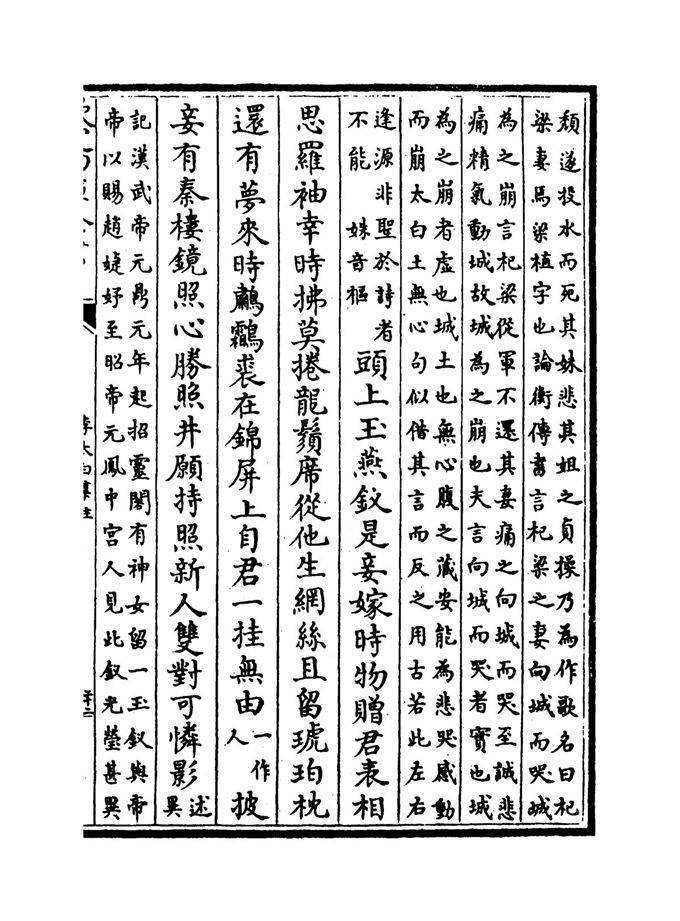 頽遂投水而死其妹悲其姐之貞操乃為作歌名曰杞
梁妻焉梁植字也論衡傳書言杞梁之妻向城而哭城
為之崩言杞梁從軍不還其妻痛之向城而哭至誠悲
痛精氣動城故城為之崩也夫言向城而哭者實也城
為之崩者虛也城土也無心腹之藏安能為悲哭感動
而崩太白土無心句似借其言而反之用古若此左右
逢源非聖於詩者
不能　姝音樞
頭上玉燕釵是妾嫁時物贈君表相
思羅袖幸時拂莫捲龍鬚席從他生網絲且留琥珀枕
還有夢來時鸕鷀裘在錦屏上自君一挂無由一作人披
妾有秦樓鏡照心勝照井願持照新人雙對可憐影述異
記漢武帝元鼎元年起招靈閣有神女留一玉釵與帝
帝以賜趙婕妤至昭帝元鳳中宫人見此釵光瑩甚異
李太白集注